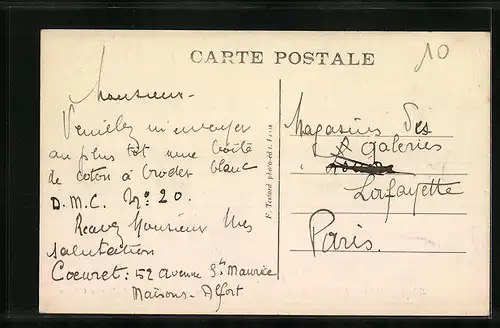 CARTE POSTALE
10
Monsieur -
Veuillez m'envoyer
au plus tôt une boîte
de coton à broder blanc
D.M.C. No: 20.
Recevez Monsieur Mes
salutation
Coeuret: 52 avenue St Maurice
Maisons-Alfort
Magasins des
Galeries
Lafayette
Paris.